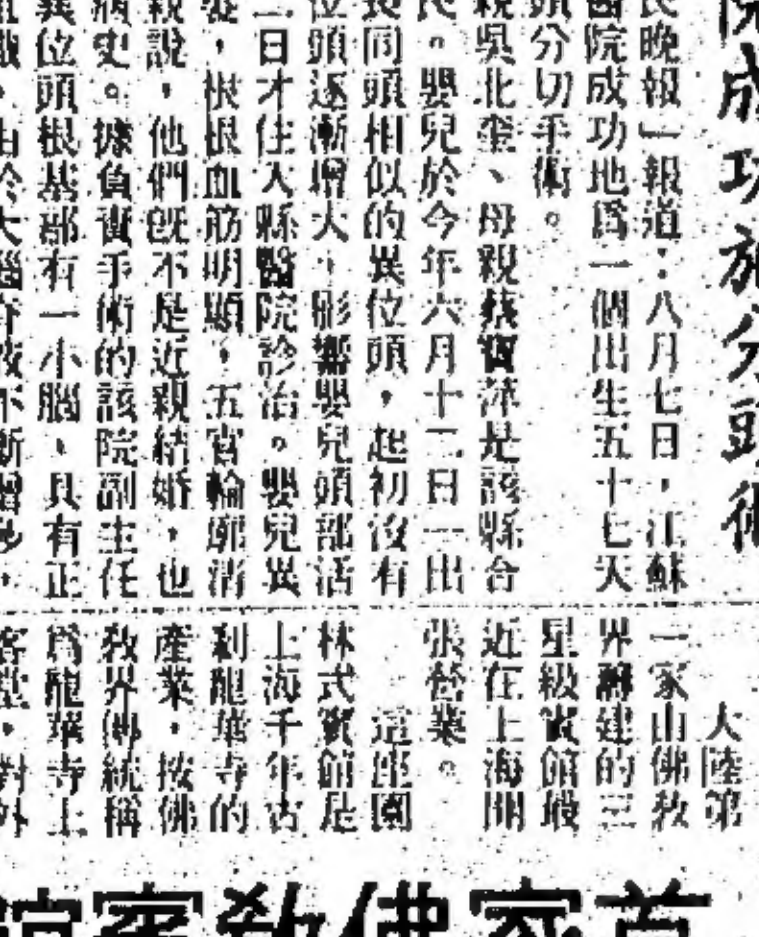 院成功施分頭術
民晚報」報道：八月七日，江蘇
醫院成功地爲一個出生五十七天
頭分切手術。
親吳化銮、母親蔡寶萍是該縣合
民。嬰兒於今年六月十二日一出
長同頭相似的異位頭，起初沒有
位頭逐漸增大，影響嬰兒頭部活
二日才住入縣醫院診治。嬰兒異
髮，根根血筋明顯，五官輪廓清
親說，他們旣不是近親結婚，也
病史。據負責手術的該院副主任
異位頭根基部有一小腦，具有正
，由於大腦脊液不斷增多，
大陸第
一家由佛敎
界籌建的三
星級賓館最
近在上海開
張營業。
這座園
林式賓館是
上海千年古
刹龍華寺的
產業，按佛
敎界傳統稱
爲龍華寺上
客堂，對外
首家佛敎賓館